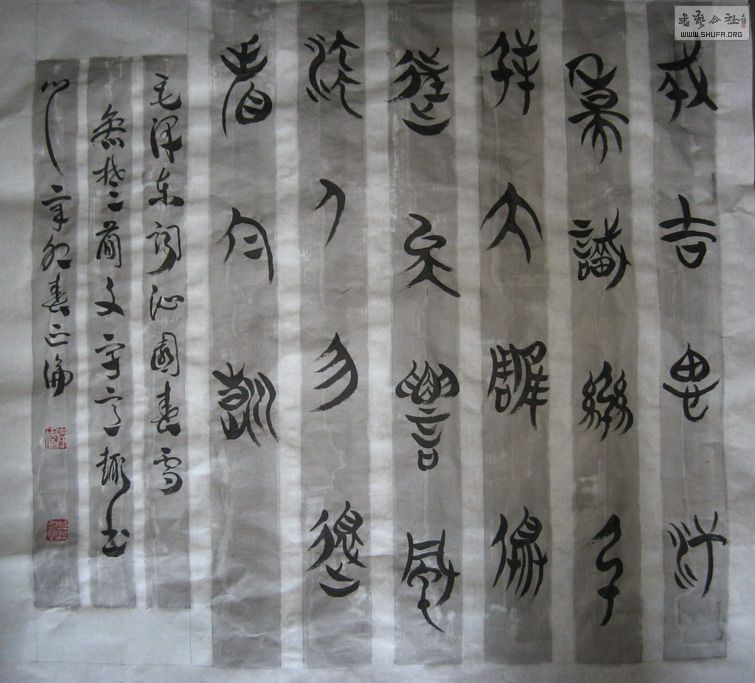 書藝公社
WWW.SHUFA.ORG
成吉思汗
只識彎弓
射大雕俱
往矣數風
流人物還
看今朝
毛泽东詞沁園春雪
楚簡文字意趣書
辛卯春正倫